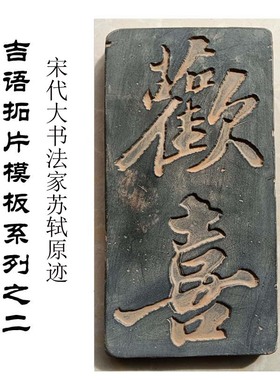 吉语拓片模板系列之二
宋代大书法家苏轼原迹
歡喜